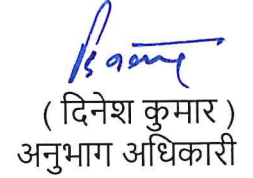 ( दिनेश कुमार )
अनुभाग अधिकारी